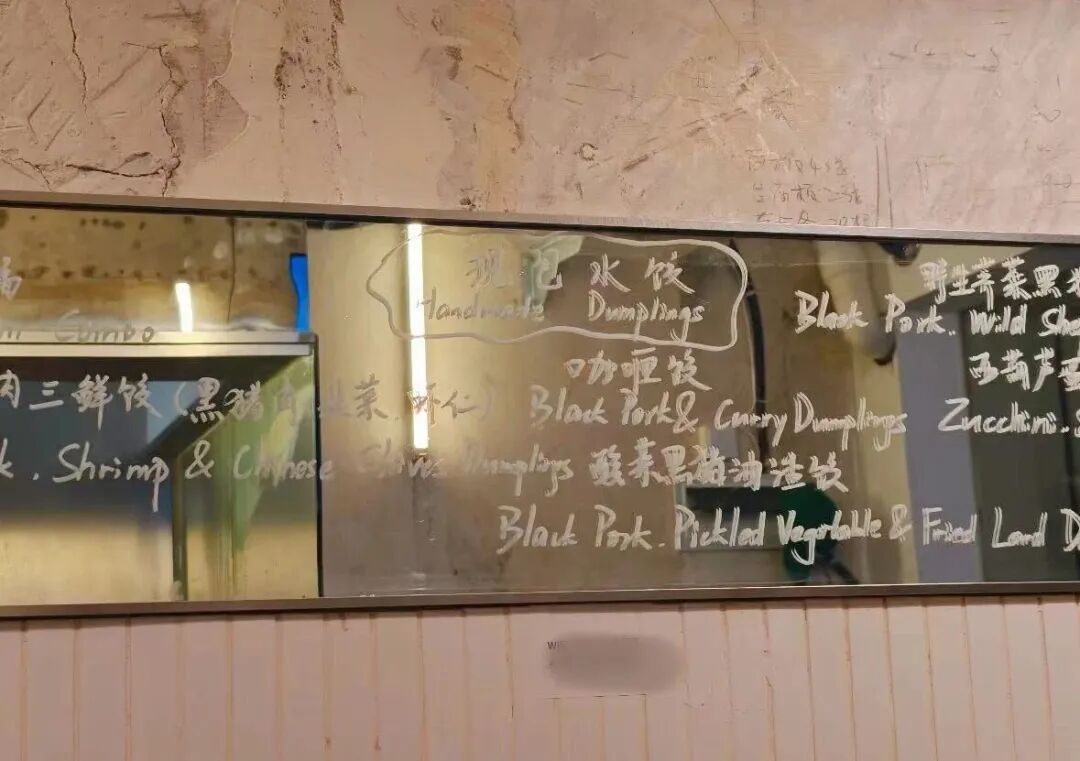 现包水饺
Handmade Dumplings
野生荠菜黑
Black Pork. Wild She
Combo
咖喱饺
西葫芦
肉三鲜饺(黑猪肉 韭菜 虾仁)
Black Pork & Curry Dumplings
Zucchini.
k. Shrimp & Chinese Chive Dumplings
酸菜黑猪油渣饺
Black Pork. Pickled Vegetable & Fried Lard D